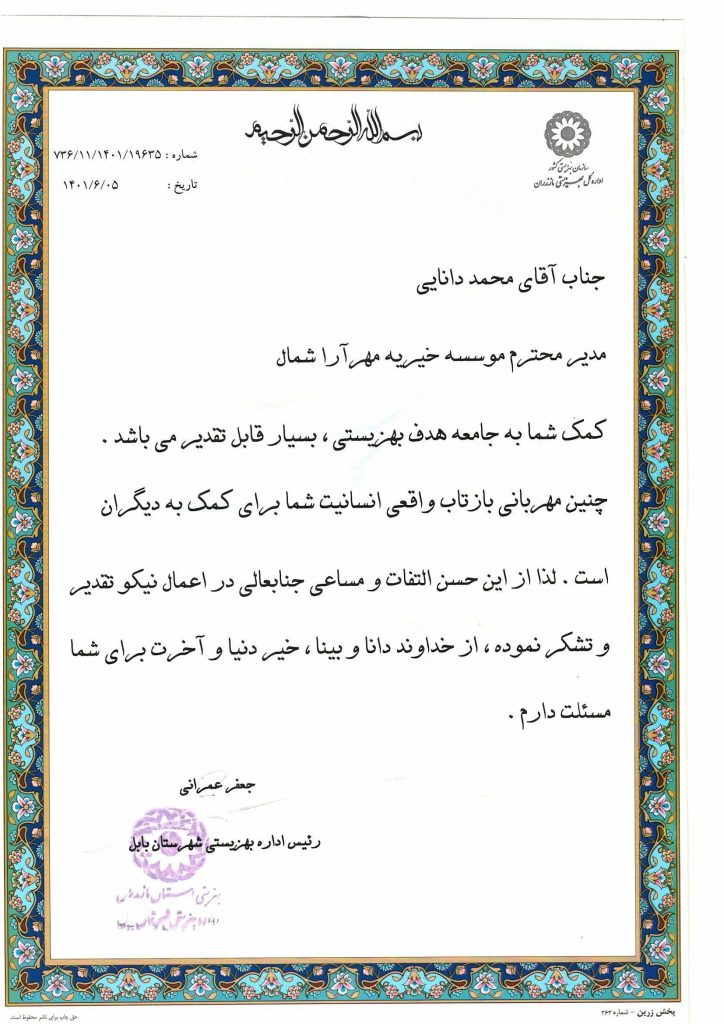 بسم الله الرحمن الرحیم
سازمان بهزیستی کشور
اداره کل بهزیستی مازندران
شماره : ۷۳۶/۱۱/۱۴۰۱/۱۹۶۳۵
تاریخ : ۱۴۰۱/۶/۰۵
جناب آقای محمد دانایی
مدیر محترم موسسه خیریه مهرآرا شمال
کمک شما به جامعه هدف بهزیستی ، بسیار قابل تقدیر می باشد .
چنین مهربانی بازتاب واقعی انسانیت شما برای کمک به دیگران
است . لذا از این حسن التفات و مساعی جنابعالی در اعمال نیکو تقدیر
و تشکر نموده ، از خداوند دانا و بینا ، خیر دنیا و آخرت برای شما
مسئلت دارم .
جعفر عمرانی
رئیس اداره بهزیستی شهرستان بابل
بهزیستی استان مازندران
بهزیستی شهرستان بابل
پخش زرین - شماره ۲۶۳
حق چاپ برای ناشر محفوظ است.